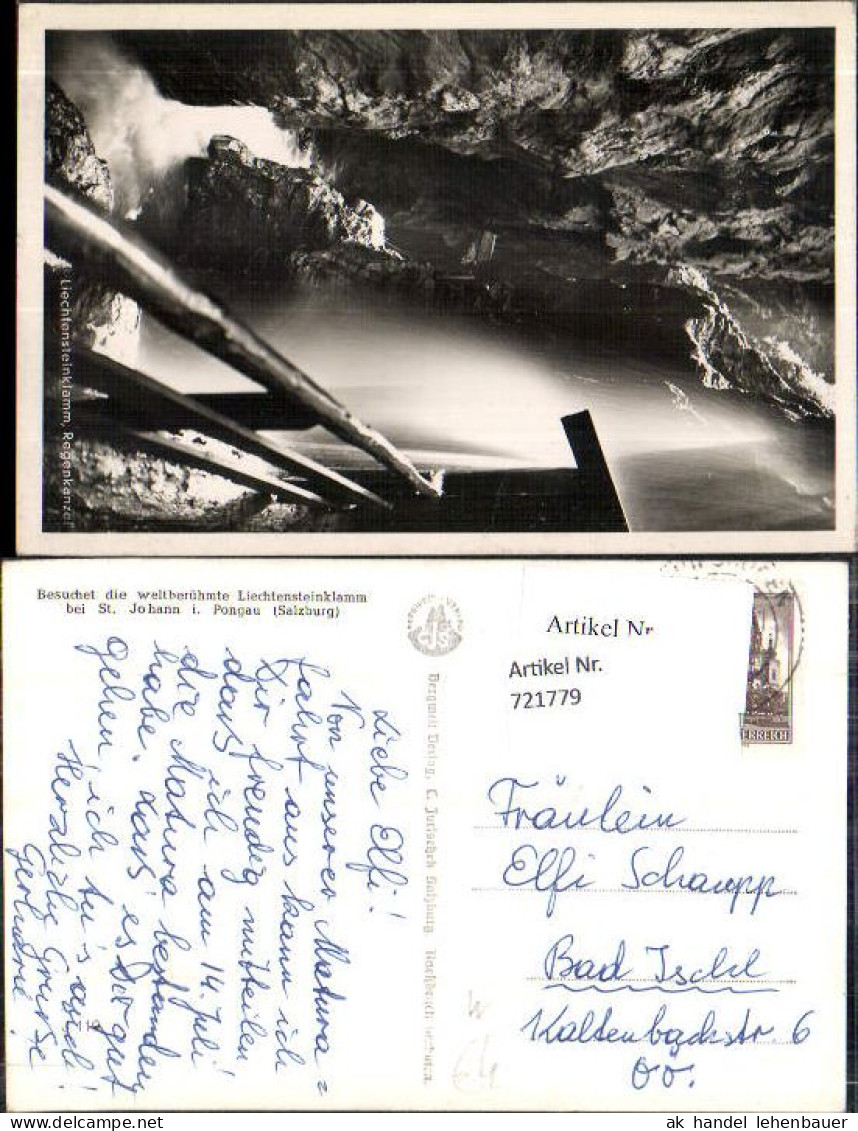 Liechtensteinklamm, Regenkanzel
Besuchet die weltberühmte Liechtensteinklamm
bei St. Johann i. Pongau (Salzburg)
Artikel Nr
Artikel Nr.
721779
ERREICH
Liebe Elfi!
Von unserer Matura=
fahrt aus kann ich
Dir freudig mitteilen
dass ich am 14. Juli
die Matura bestanden
habe. dass es Dir gut
gehen, ich tu's auch!
Herzliche Grüsse
Bergwelt Verlag, C. Jurischek Salzburg. Nachdruck verboten.
Fräulein
Elfi Schaupp
Bad Ischl
Kaltenbachstr. 6
OÖ.
ak handel lehenbauer